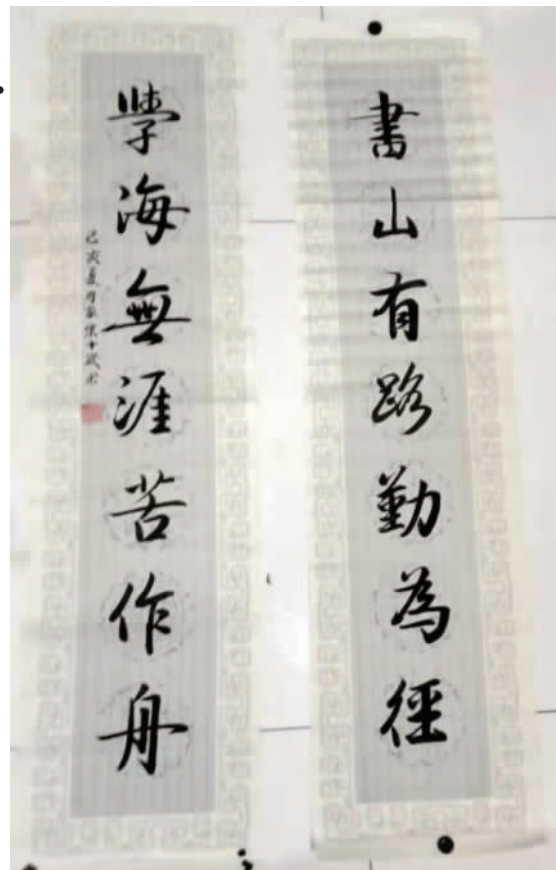 書山有路勤為徑
學海無涯苦作舟
己亥夏月